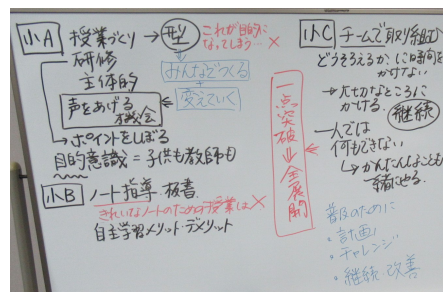 小A 授業づくり→型
これが目的に
なってしまう…×
研修
主体的
みんなでつくる
+
変えていく
声をあげる
機会
→ポイントをしぼる
目的意識=子供も教師も
小B ノート指導・板書
きれいなノートのための授業は×
自主学習メリット・デメリット
一点突破全展開
小C チームで取り組む
どうそろえるか
に時間を
かけない
→大切なところに
かける
継続
一人では
何もできない
→かんたんなことも
一緒にやる。
普及のために
・計画
・チャレンジ
・継続・改善